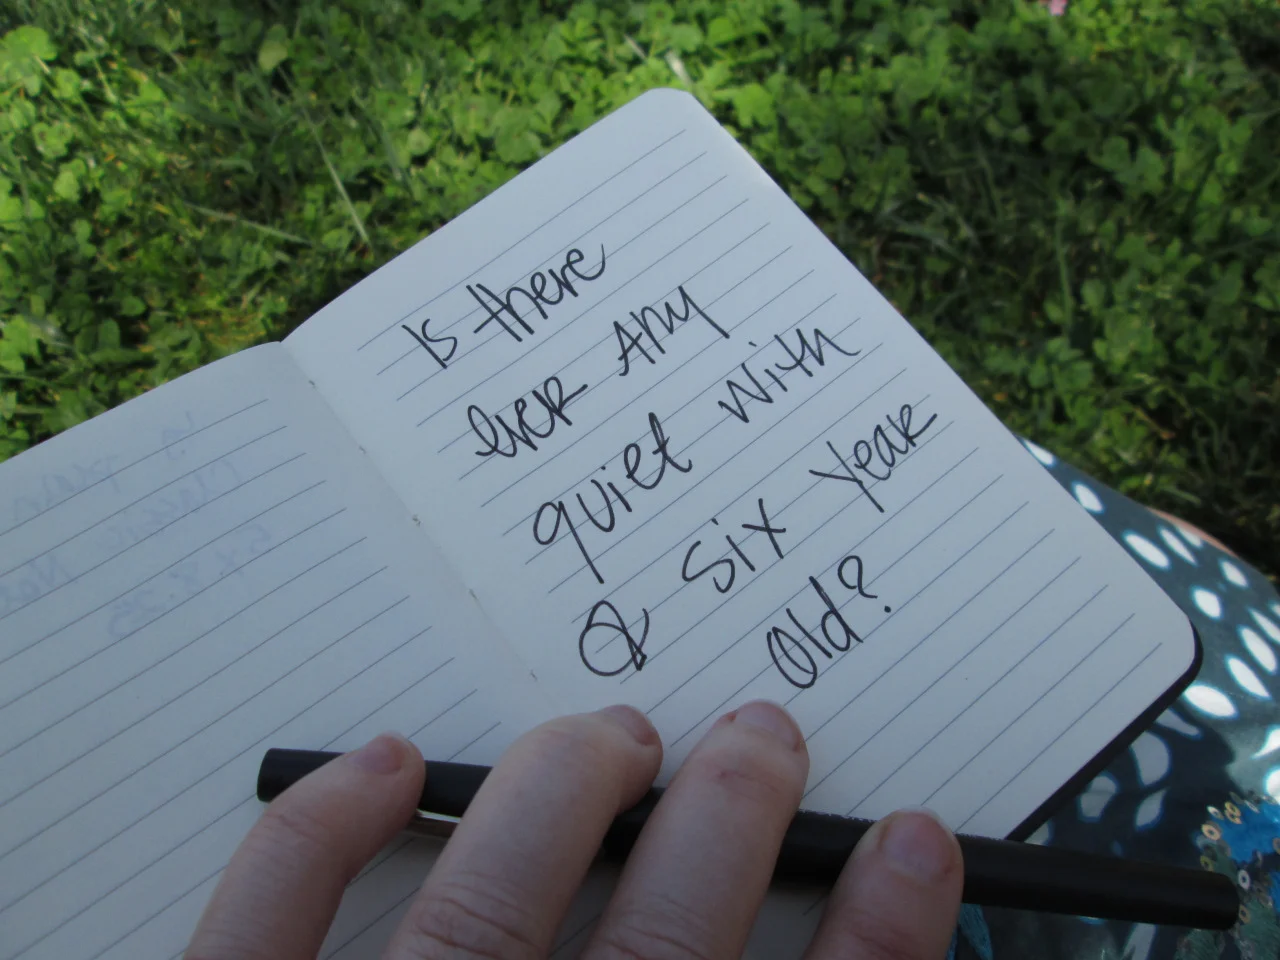 Is there
ever any
quiet with
a six year
old?